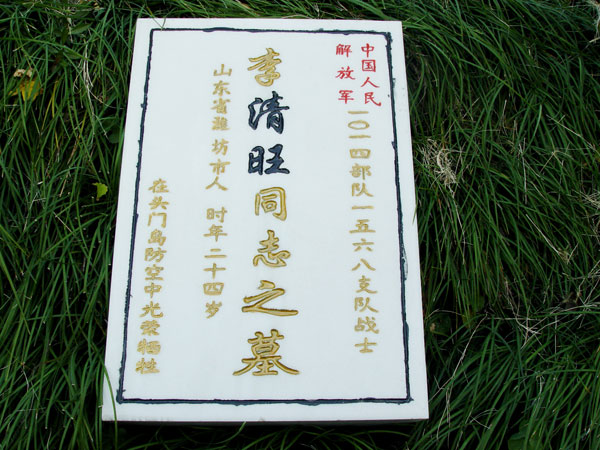 中国人民
解放军
一〇一四部队一五六八支队战士
李清旺同志之墓
山东省潍坊市人 时年二十四岁
在头门岛防空中光荣牺牲